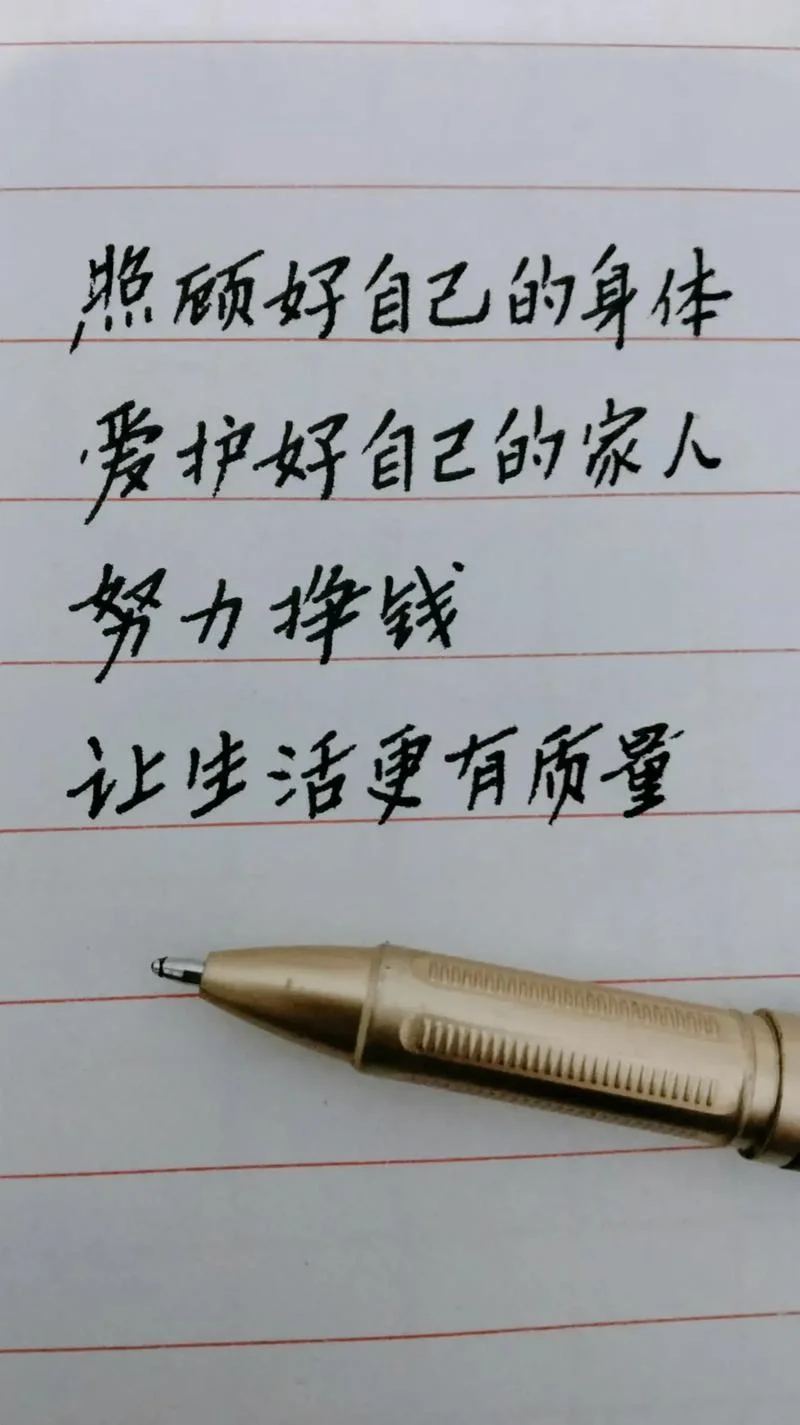 照顾好自己的身体
爱护好自己的家人
努力挣钱
让生活更有质量